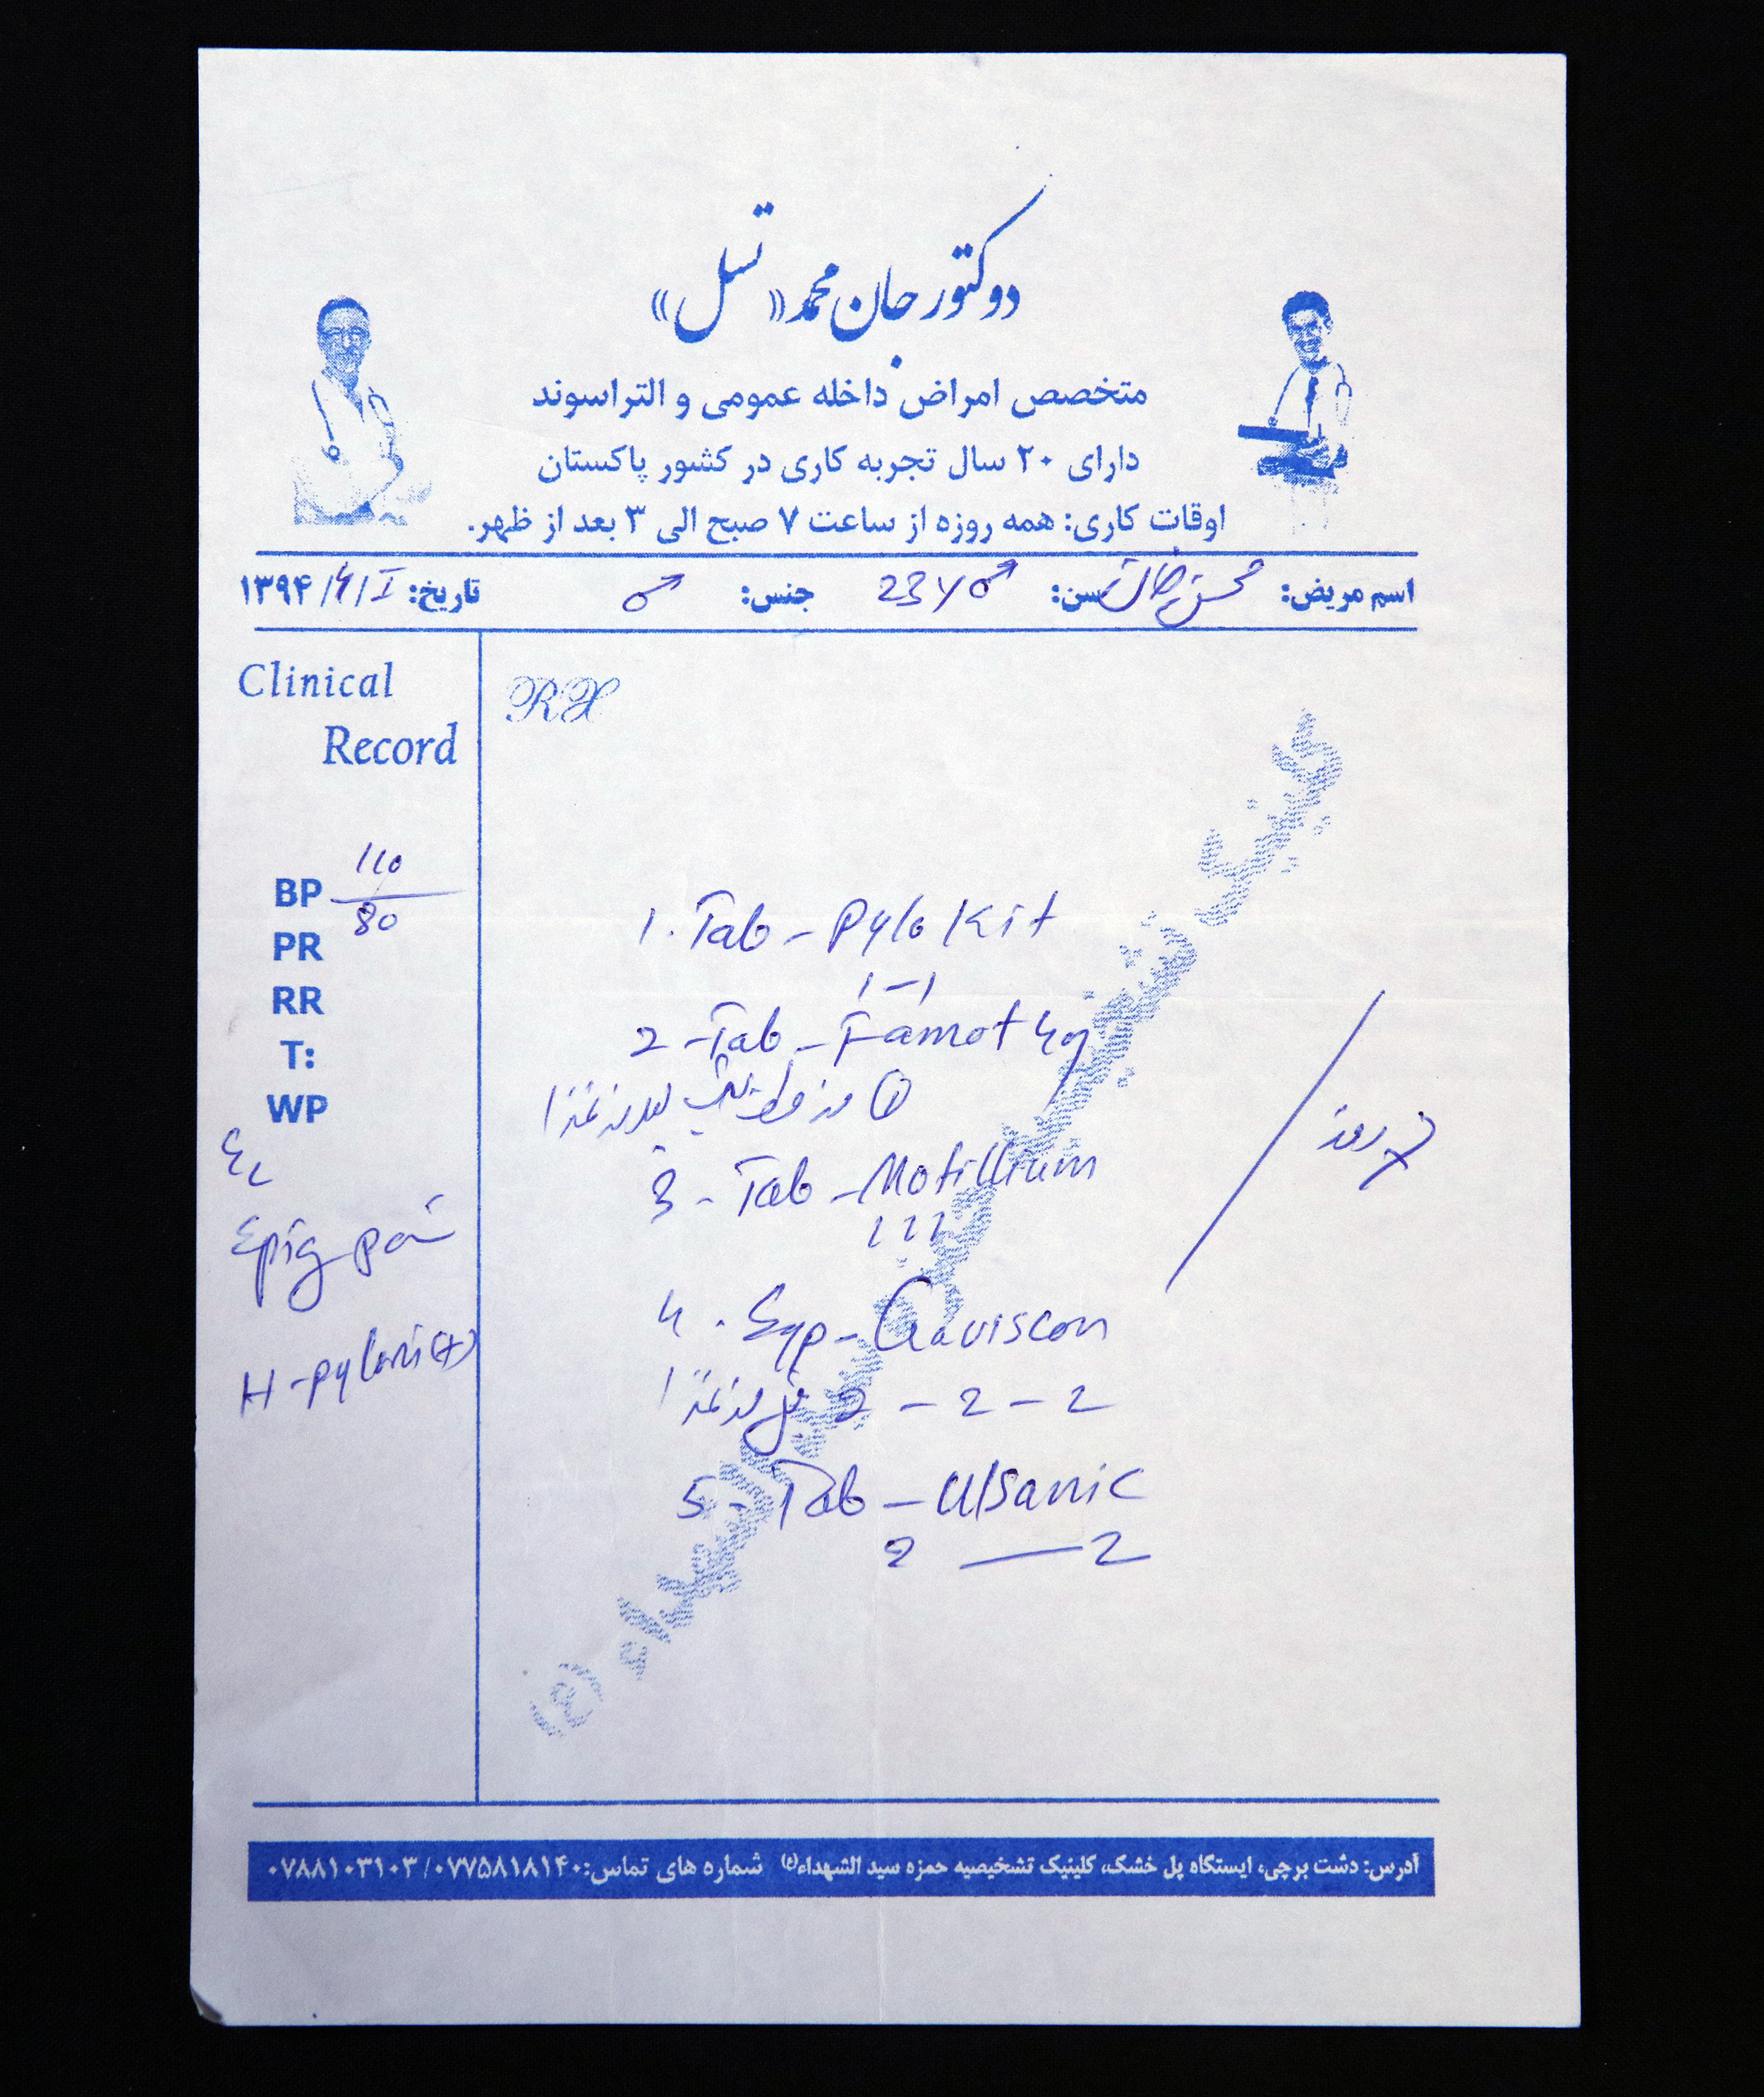 دوکتور جان محمد «تسل»
متخصص امراض داخله عمومی و التراسوند
دارای ۲۰ سال تجربه کاری در کشور پاکستان
اوقات کاری: همه روزه از ساعت ۷ صبح الی ۳ بعد از ظهر.
اسم مریض: محسن سن: 23 y ♂ جنس: ♂ تاریخ: / / ۱۳۹۴
Clinical
Record
BP 110/80
PR
RR
T:
WP
Epig pai
H-pylori(+)
RX
1. Tab - Pylo Kit
1 - 1
2 - Tab - Famot 40
3 - Tab - Motillium
1 1 1
4. Syp - Gaviscon
2 - 2 - 2
5 - Tab - Ulsanic
2 — 2
روز
آدرس: دشت برچی، ایستگاه پل خشک، کلینیک تشخیصیه حمزه سید الشهداء(ع) شماره های تماس: ۰۷۷۵۸۱۸۱۴۰ / ۰۷۸۸۱۰۳۱۰۳